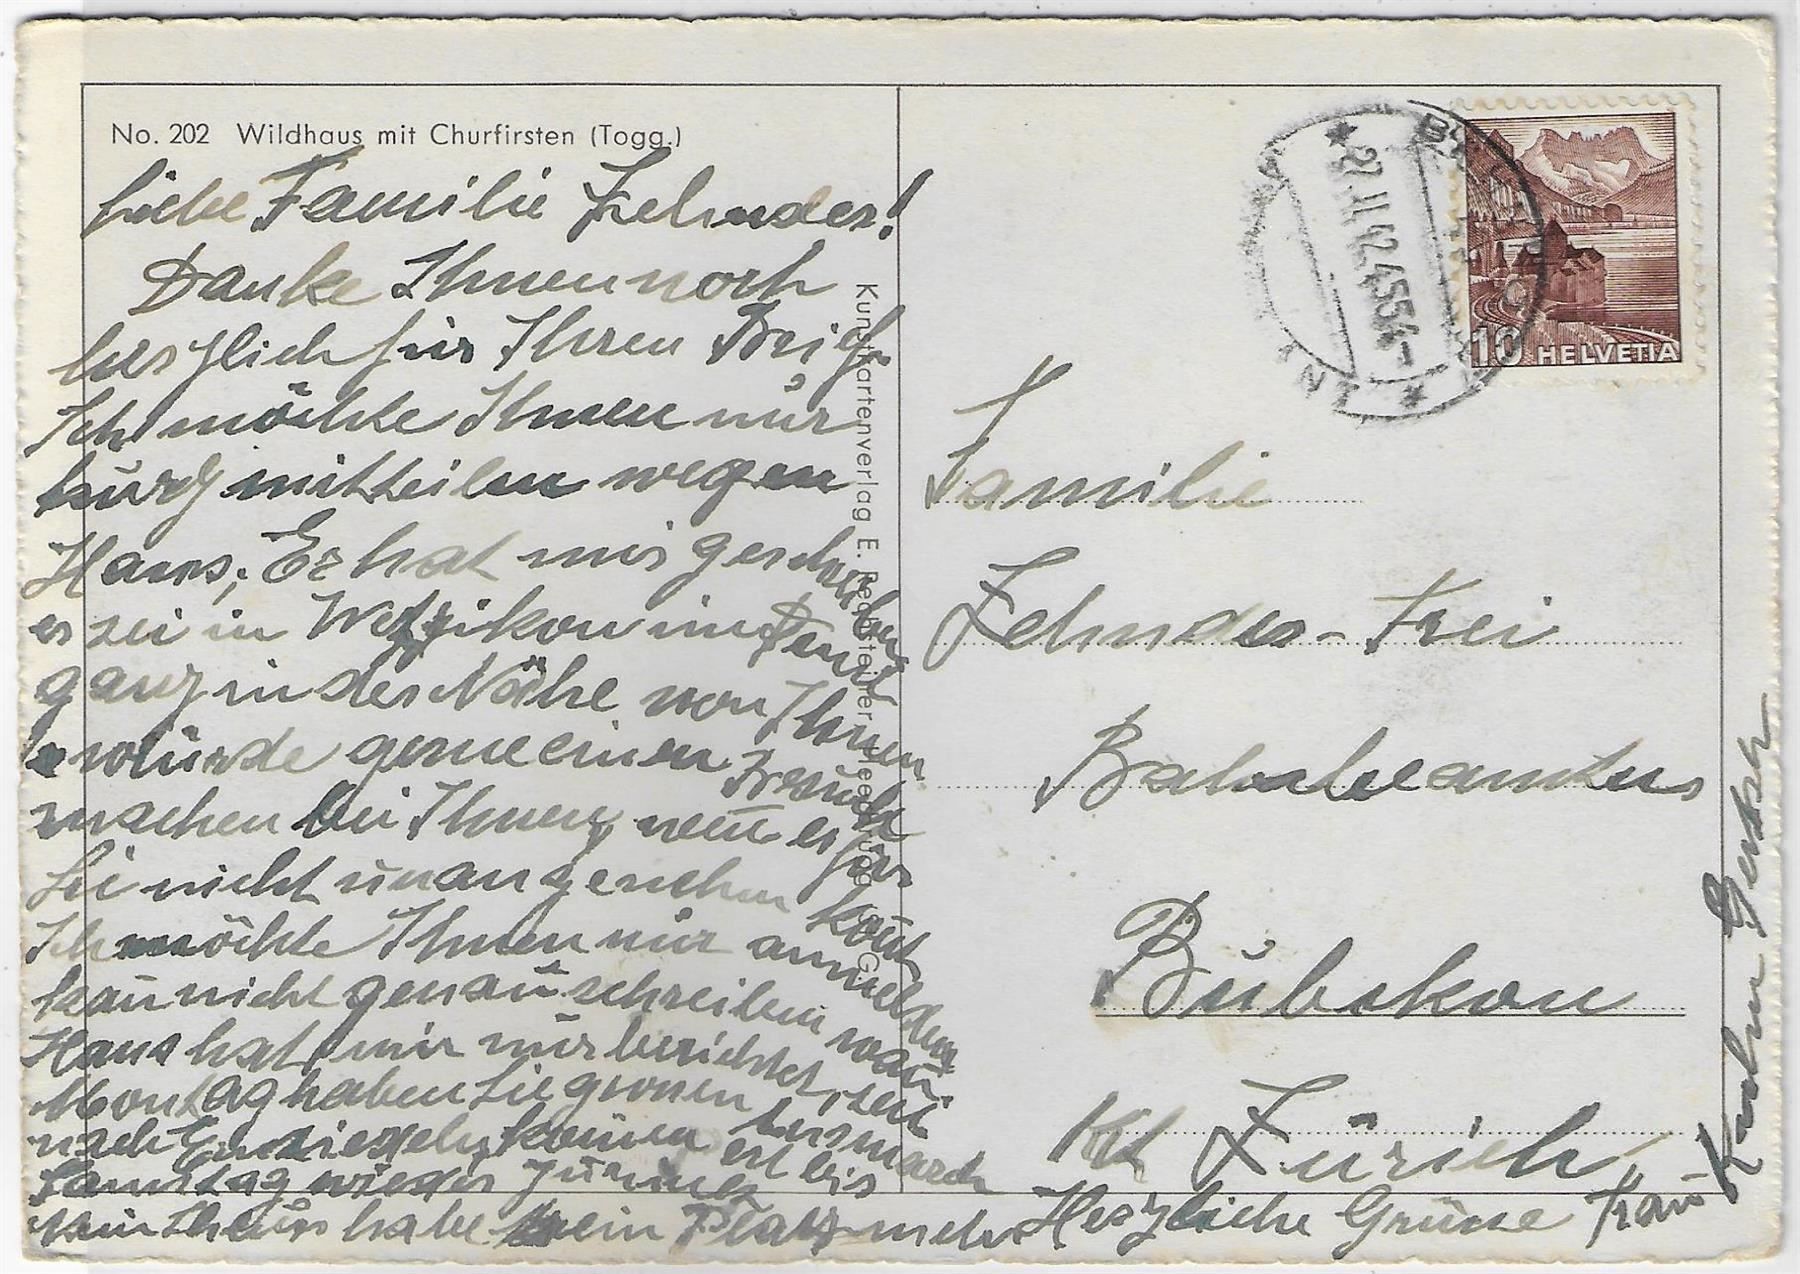 No. 202 Wildhaus mit Churfirsten (Togg.)
Liebe Familie Zehnder!
Danke Ihnen noch
herzlich für Ihren Brief
Ich möchte Ihnen nur
kurz mitteilen wegen
Hans, Er hat mir geschrieben
er sei in Wetzikon im Dienst
ganz in der Nähe von Ihnen
würde gerne einen Besuch
machen bei Ihnen, wen̄ es für
Sie nicht unangenehm
Ich möchte Ihnen nur anmelden
kan̄ nicht genau schreiben wan̄
Hans hat mir nur berichtet, seit
Montag haben Sie grossen
nach Einsiedeln, kom̄en erst bis
Samstag wieder zurück
habe kein Platz mehr
Herzliche Grüsse Frau
Kunstkartenverlag E.
27.II.42.
10 HELVETIA
Familie
Zehnder-Frei
Bahnbeamters
Bubikon
Kt Zürich